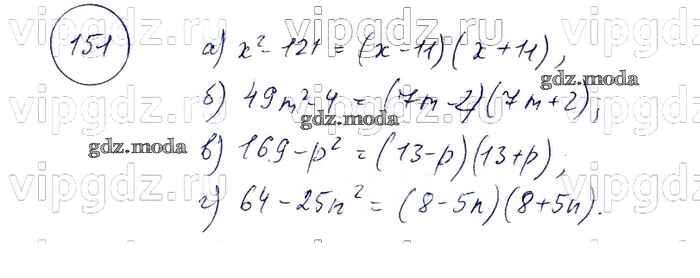 vipgdz.ru vipgdz.ru vipgdz.ru
151 а) x² - 121 = (x - 11)(x + 11);
gdz.moda
б) 49m² - 4 = (7m - 2)(7m + 2);
gdz.moda
vipgdz.ru vipgdz.ru vipgdz.ru
gdz.moda
в) 169 - p² = (13 - p)(13 + p);
vipgdz.ru vipgdz.ru vipgdz.ru
г) 64 - 25n² = (8 - 5n)(8 + 5n).
gdz.moda